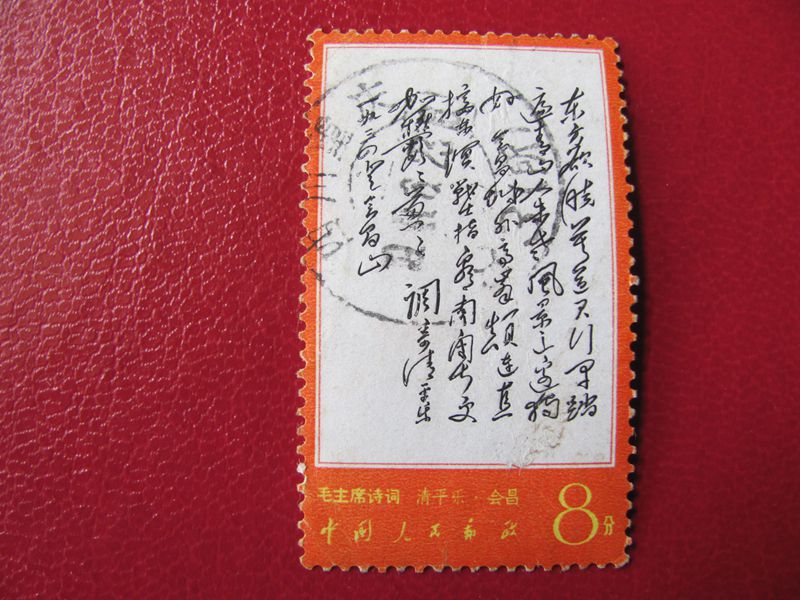 东方欲晓莫道君行早踏
遍青山人未老風景这边独
好會昌城外高峰颠连直
接东溟戰士指看南粤更
加鬱鬱葱葱
一九三四登会昌山
調寄清平乐
毛主席诗词 清平乐·会昌
中国人民邮政
8分